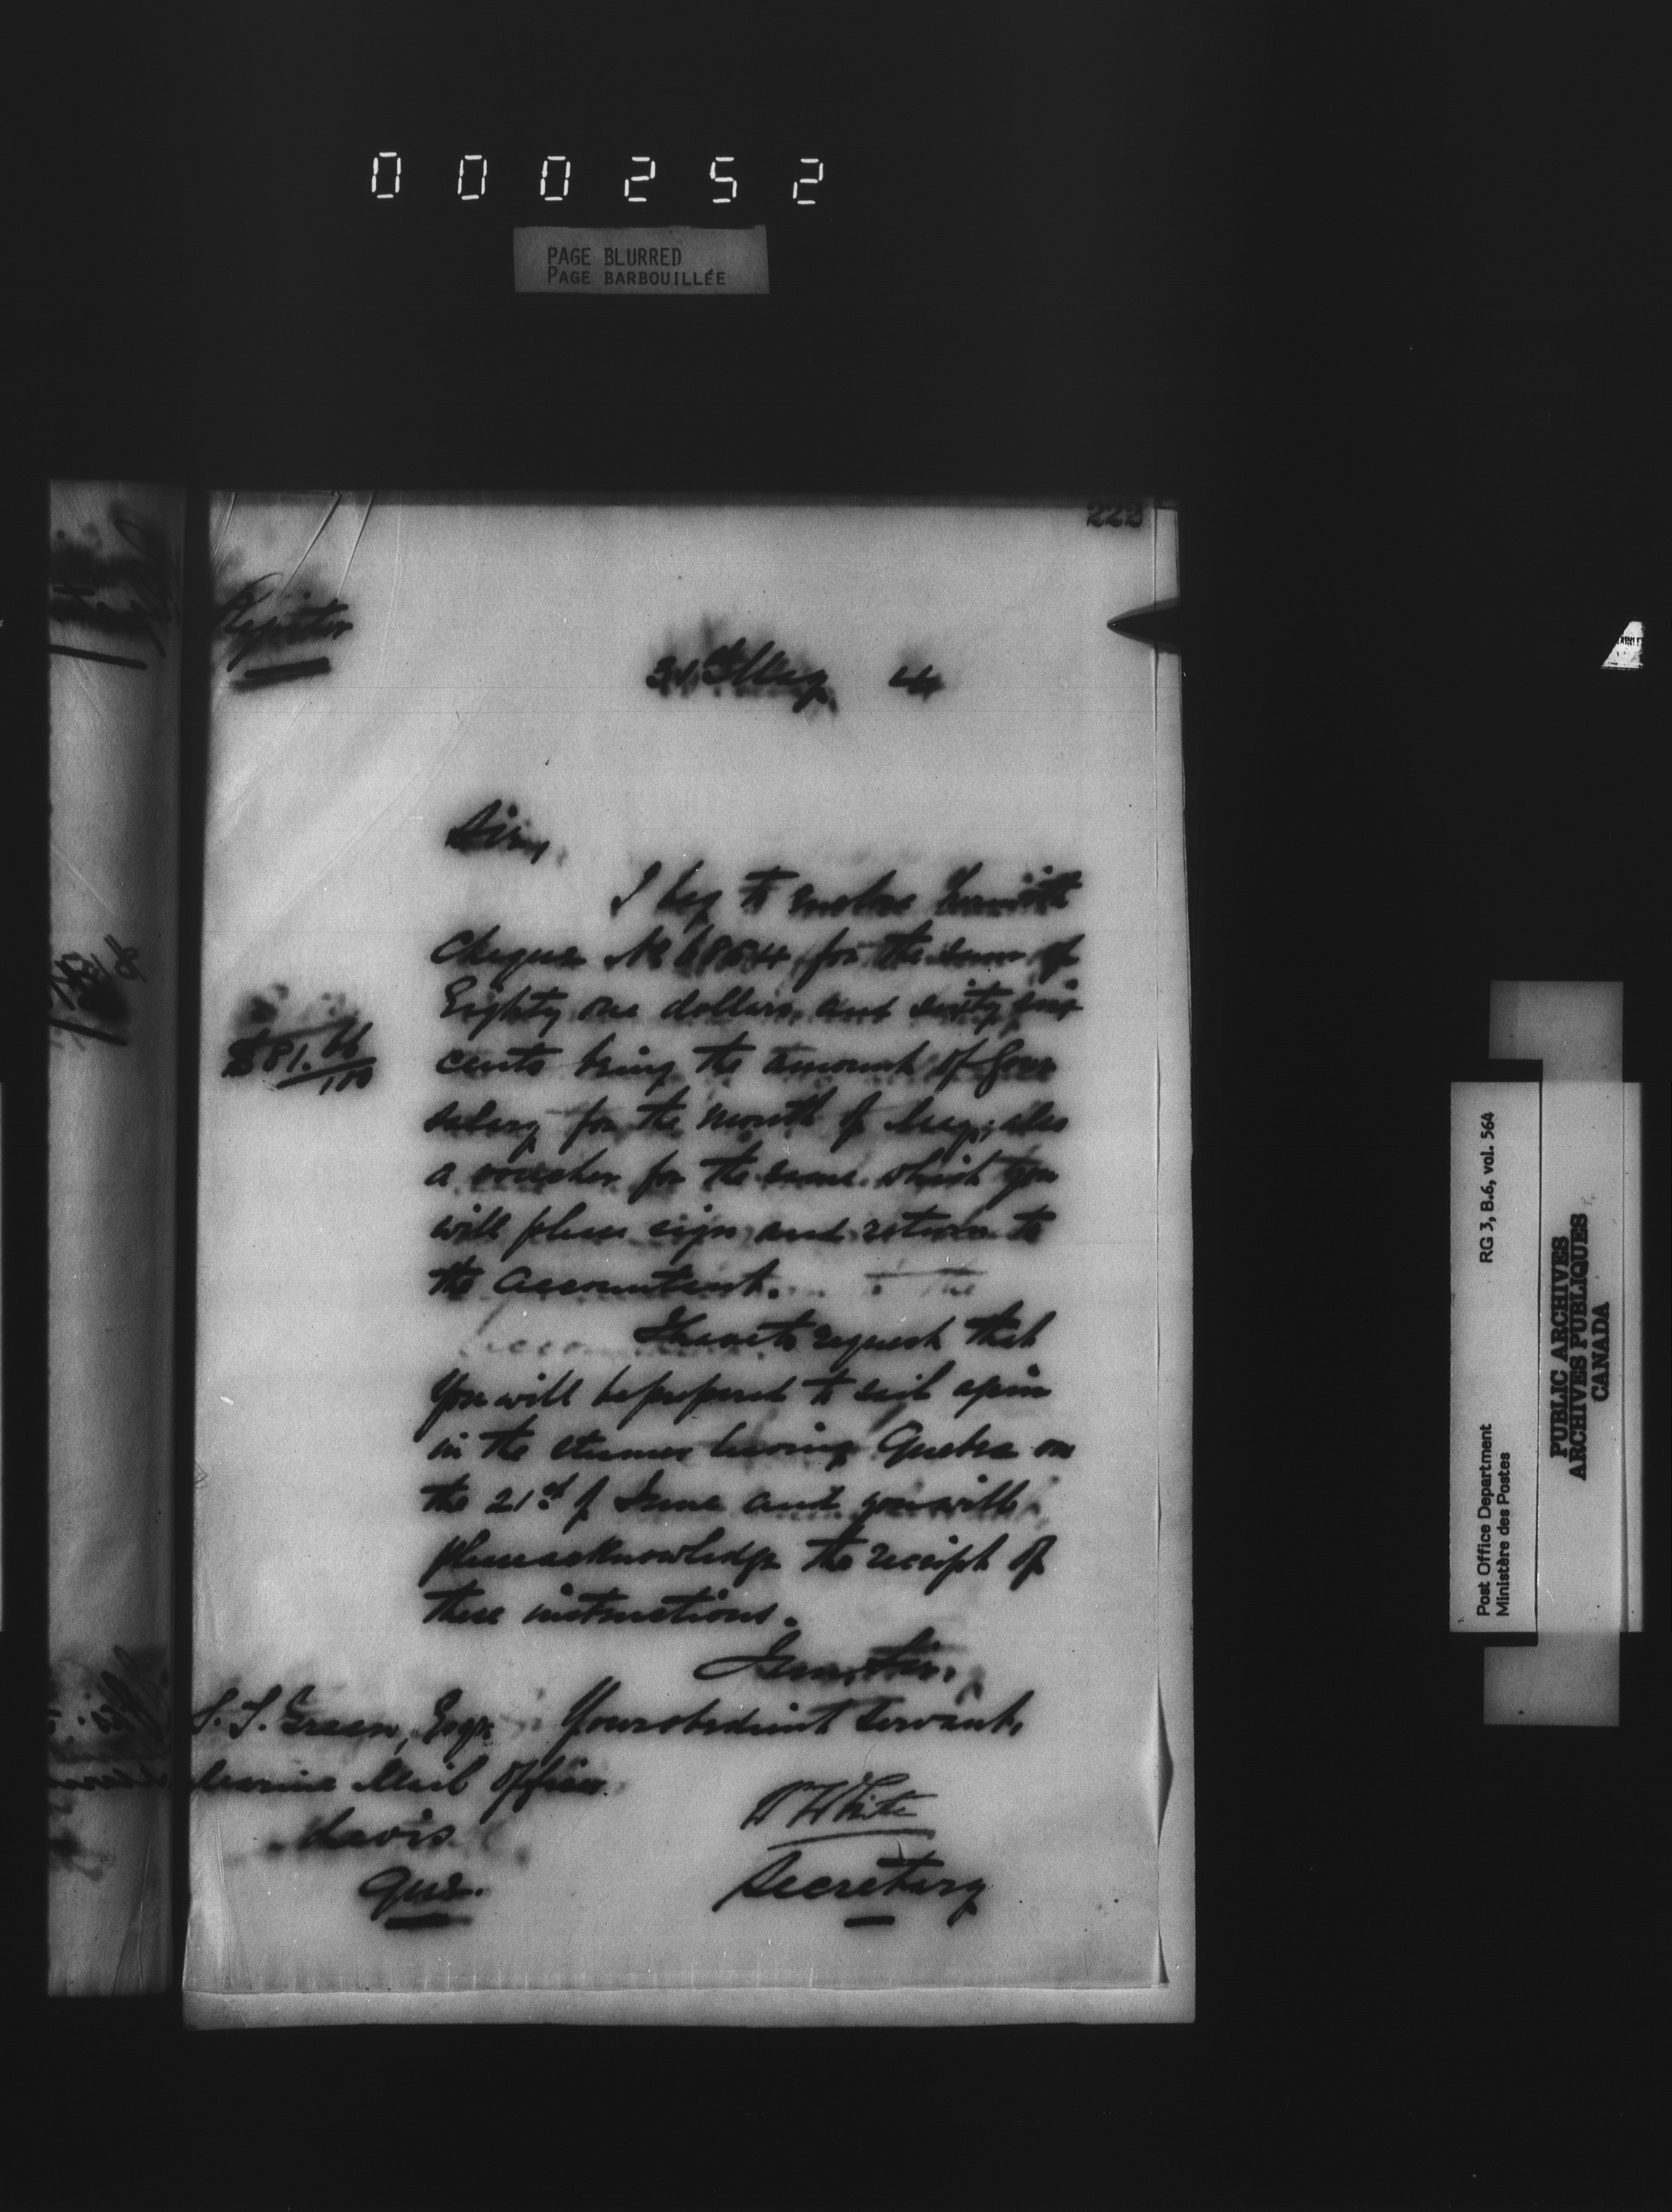 000252
PAGE BLURRED
PAGE BARBOUILLÉE
222
Register
31st May 4
Sir,
I beg to enclose herewith
Cheque No 6854 for the sum of
Eighty one dollars and sixty six
cents being the amount of your
$81.66/100
salary for the month of May; also
a voucher for the same which you
will please sign and return to
the Accountant.
I have to request that
you will be prepared to sail again
in the steamer leaving Quebec on
the 21st of June and you will
please acknowledge the receipt of
these instructions.
I am, Sir,
Your obedient Servant,
S. T. Green, Esqr
Marine Mail Officer
Levis
Que.
W White
Secretary
RG 3, B.6, vol. 564
Post Office Department
Ministère des Postes
PUBLIC ARCHIVES
ARCHIVES PUBLIQUES
CANADA